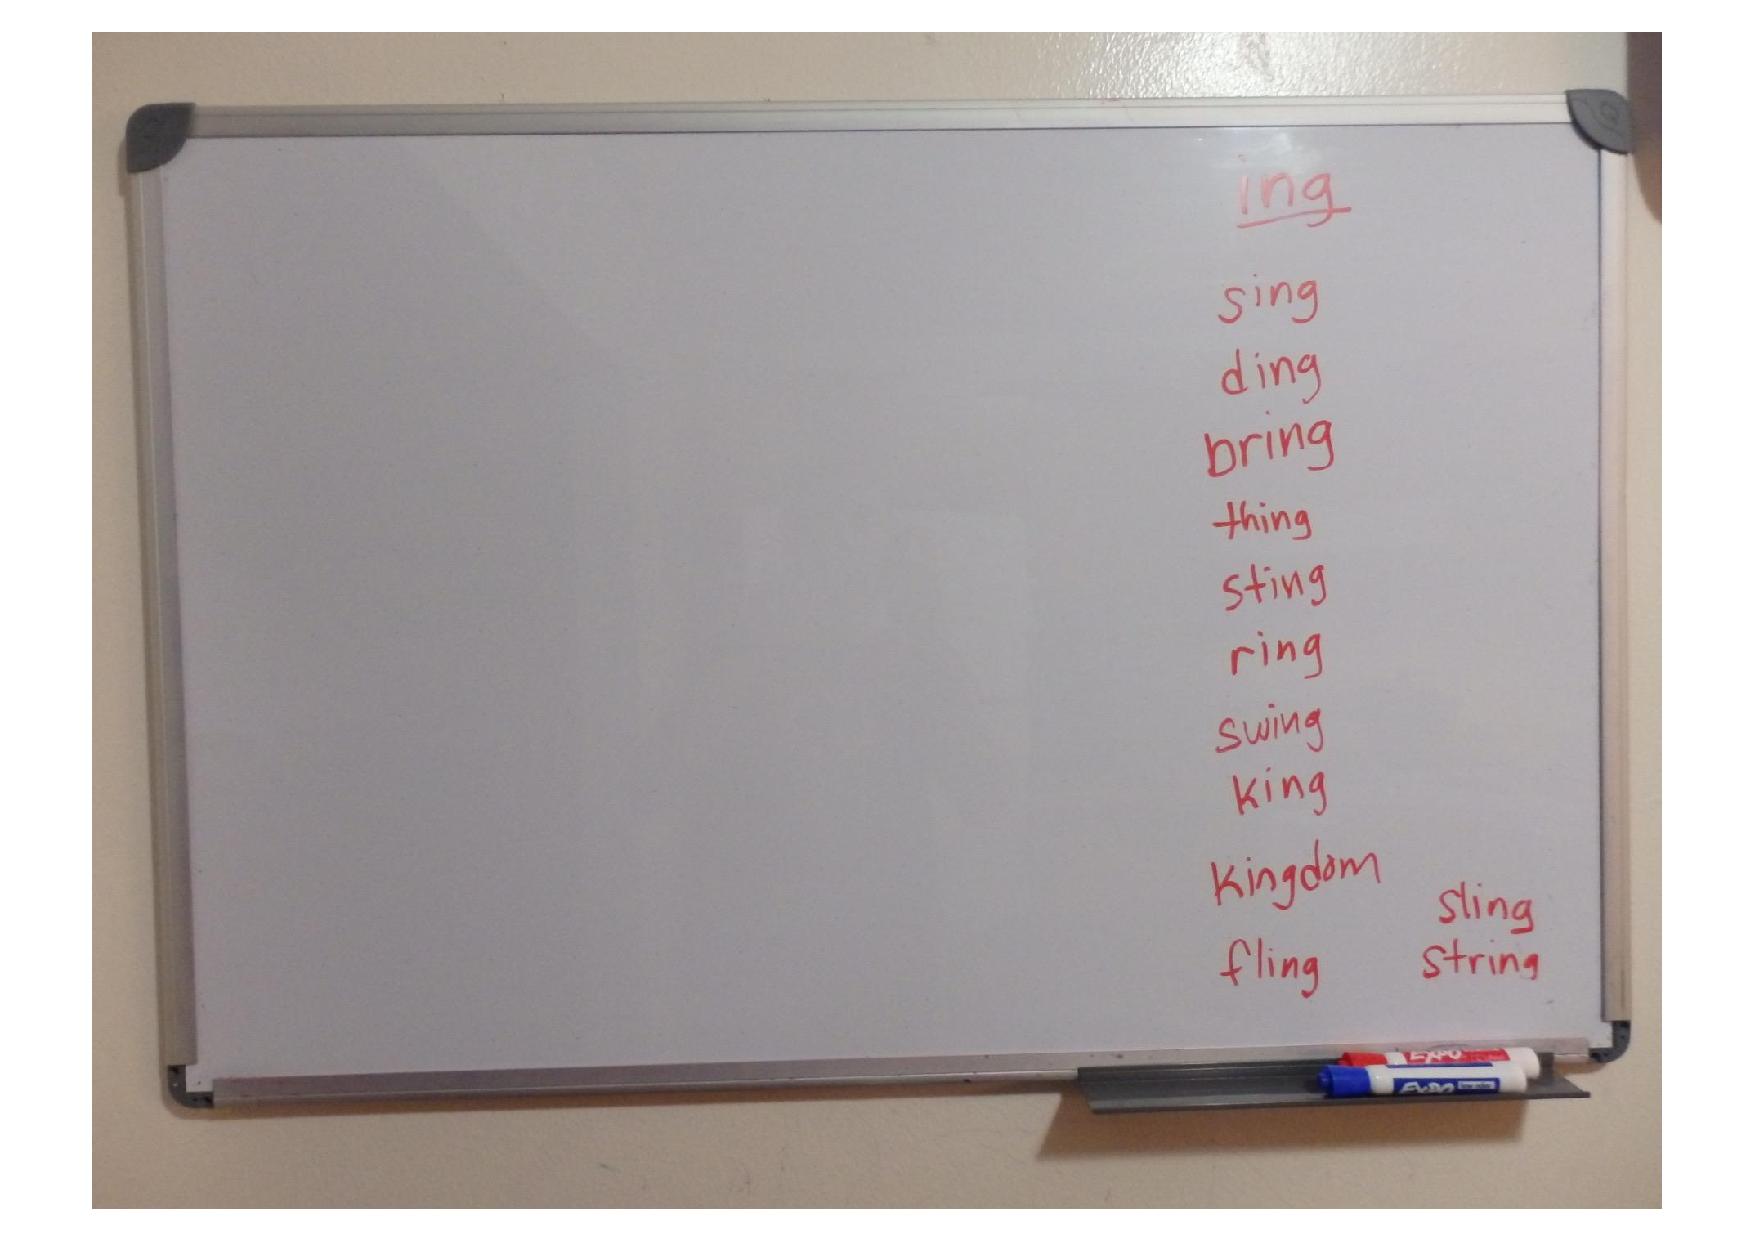 ing
sing
ding
bring
thing
sting
ring
swing
king
kingdom
fling
sling
string
EXPO
EXPO